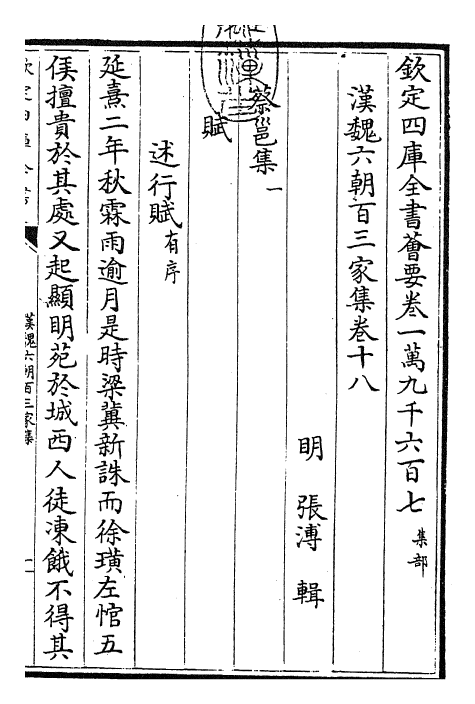 欽定四庫全書薈要卷一萬九千六百七 集部
漢魏六朝百三家集卷十八
明 張溥 輯
蔡邕集一
賦
述行賦有序
延熹二年秋霖雨逾月是時梁冀新誅而徐璜左悺五
侯擅貴於其處又起顯明苑於城西人徒凍餓不得其
漢魏六朝百三家集